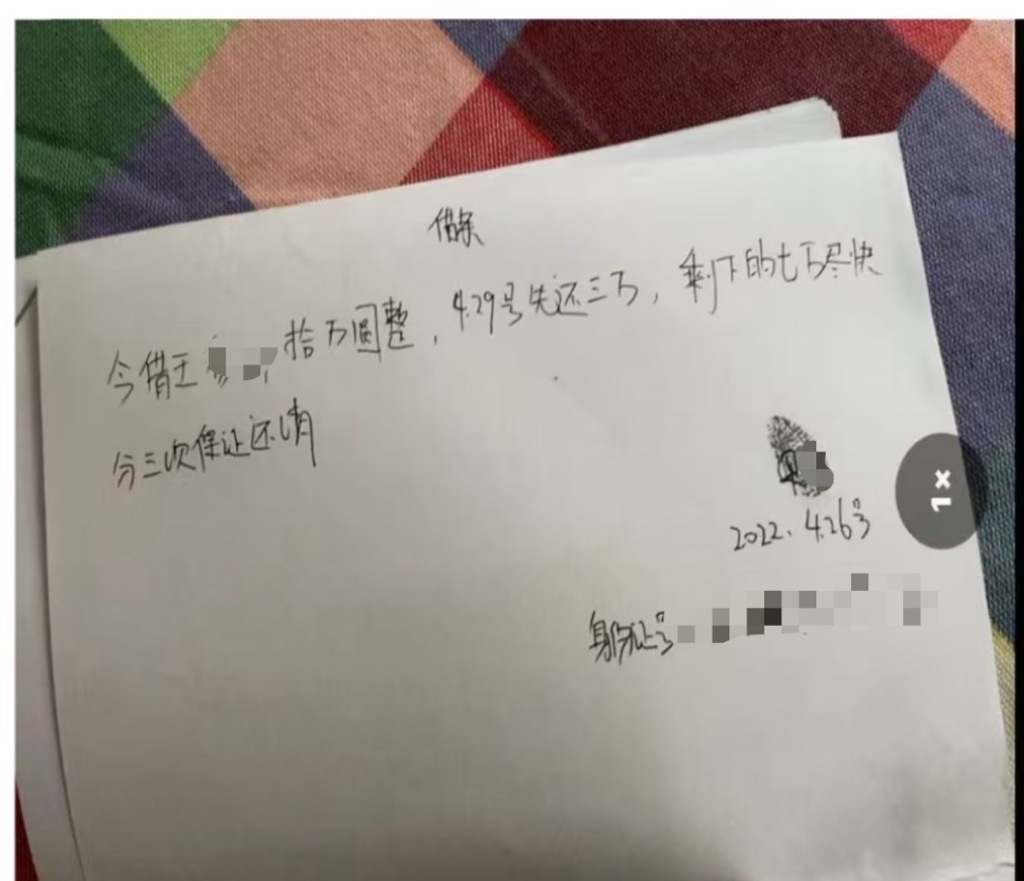 借条
今借王 拾万圆整，4.29号先还三万，剩下的七万尽快
分三次保证还清
2022.4.26号
身份证号
1×